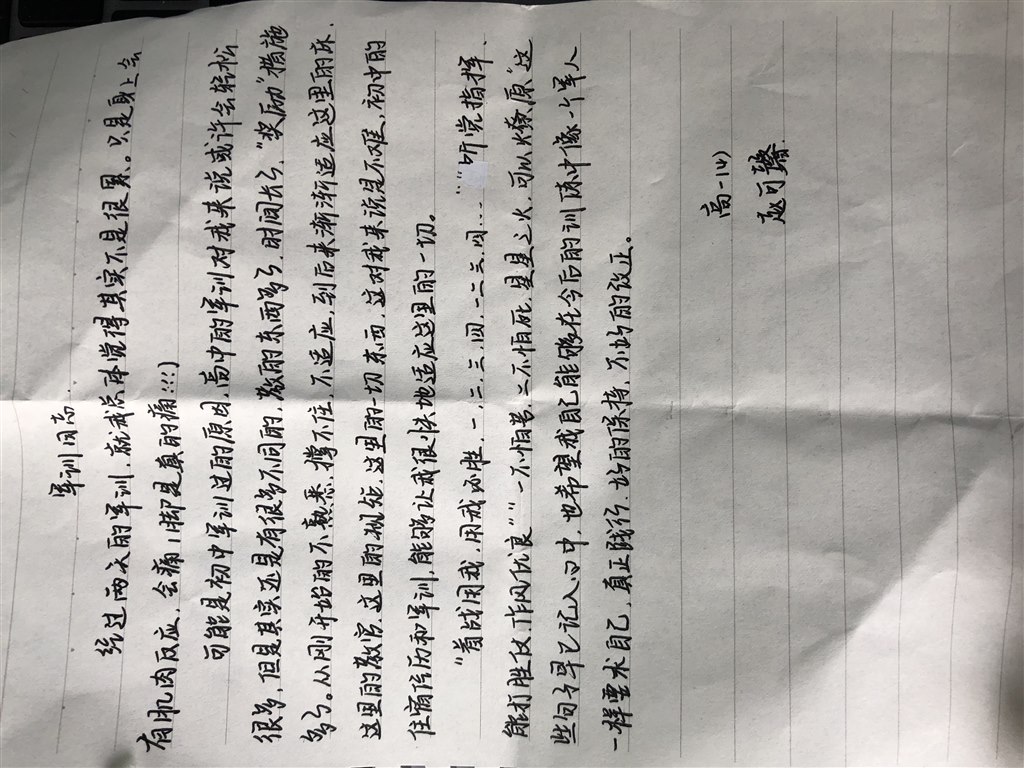 军训同高
经过两天的军训，就我总体觉得其实不是很累。只是身上会
有肌肉反应，会痛（脚是真的痛!!!）
可能是初中军训过的原因，高中的军训对我来说或许会轻松
很多，但是其实还是有很多不同的，教的东西多了，时间长了，"奖励"措施
多了。从刚开始的不熟悉，撑不住，不适应，到后来渐渐适应这里的环
这里的教官，这里的制度，这里的一切东西，这对我来说说不难，初中的
住宿经历和军训，能够让我很快地适应这里的一切。
"首战用我，用我必胜，一，二，三，四，一二三四..." "听党指挥，
能打胜仗，作风优良" "一不怕苦，二不怕死，星星之火，可以燎原"这
些句子早已记入心中，也希望我自己能够在今后的训练中像一个军人
一样要求自己，真正践行，好的保持，不好的改正。
高一(4)
赵可